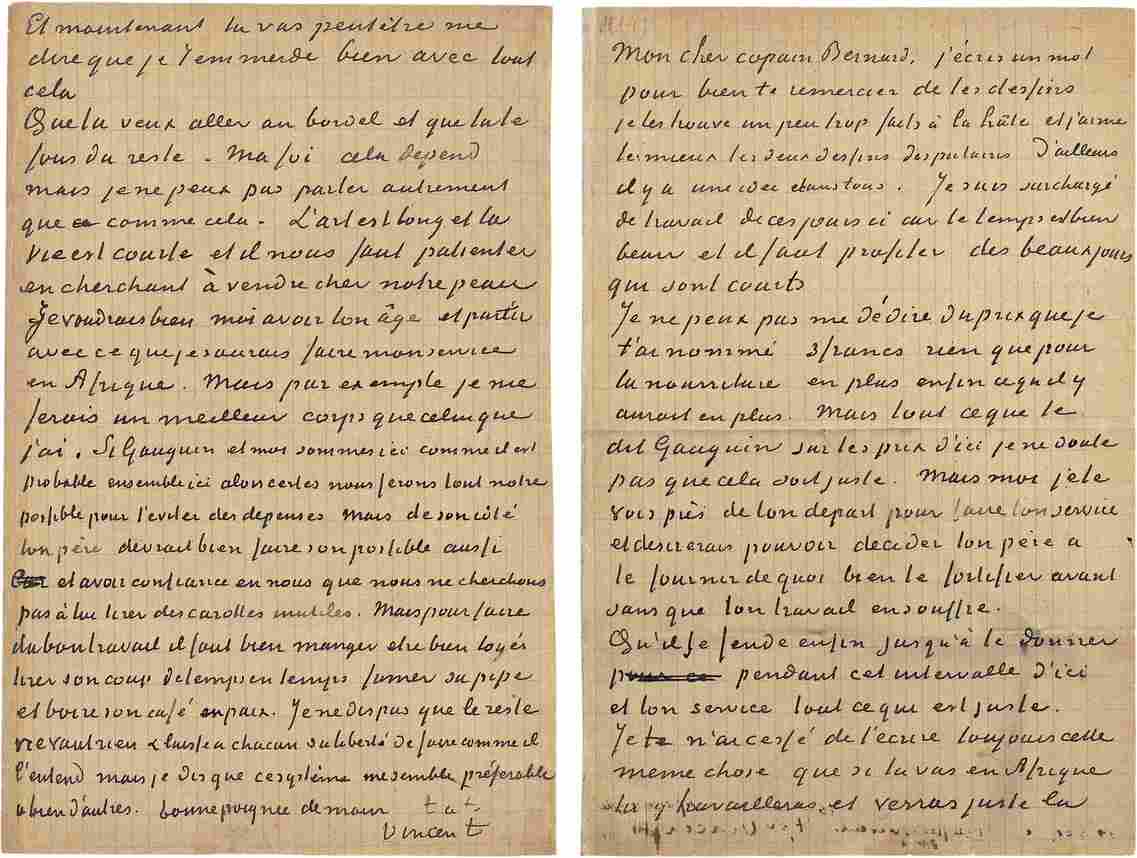 Et maintenant tu vas peutêtre me
dire que je t'emmerde bien avec tout
cela
Que tu veux aller au bordel et que tu te
fous du reste. Ma foi cela dépend
mais je ne peux pas parler autrement
que comme cela. L'art est long et la
vie est courte et il nous faut patienter
en cherchant à vendre cher notre peau
Je voudrais bien moi avoir ton âge et partir
avec ce que je saurais faire mon service
en Afrique. Mais par exemple je me
ferais un meilleur corps que celui que
j'ai. Si Gauguin et moi sommes ici comme il est
probable ensemble ici alors certes nous ferons tout notre
possible pour t'eviter des depenses mais de son côté
ton père devrait bien faire son possible aussi
et avoir confiance en nous que nous ne cherchons
pas à lui tirer des carottes inutiles. Mais pour faire
du bon travail il faut bien manger etre bien logés
tirer son coup de temps en temps fumer sa pipe
et boire son café en paix. Je ne dis pas que le reste
ne vaut rien & laisse à chacun sa liberté de faire comme il
l'entend mais je dis que ce système me semble préférable
à bien d'autres. bonne poignee de main t. à t.
Vincent
Mon cher copain Bernard, j'écris un mot
pour bien te remercier de tes dessins
je les trouve un peu trop faits à la hâte et j'aime
le mieux les deux dessins des putains D'ailleurs
il y a une idee dans tous. Je suis surchargé
de travail de ces jours ci car le temps est bien
beau et il faut profiter des beaux jours
qui sont courts
Je ne peux pas me dédire du prix que je
t'ai nommé 3 francs rien que pour
la nourriture en plus enfin ce qu'il y
aurait en plus. Mais tout ce que te
dit Gauguin sur les prix d'ici je ne doute
pas que cela soit juste. Mais moi je te
vois près de ton depart pour faire ton service
et desirerais pouvoir decider ton père a
te fournir de quoi bien te fortifier avant
sans que ton travail en souffre.
Qu'il se fende enfin jusqu'à te donner
pour ce pendant cet intervalle d'ici
et ton service tout ce qui est juste.
Je te n'ai cessé de t'écrire toujours cette
meme chose que si tu vas en Afrique
tu y travailleras et verras juste la